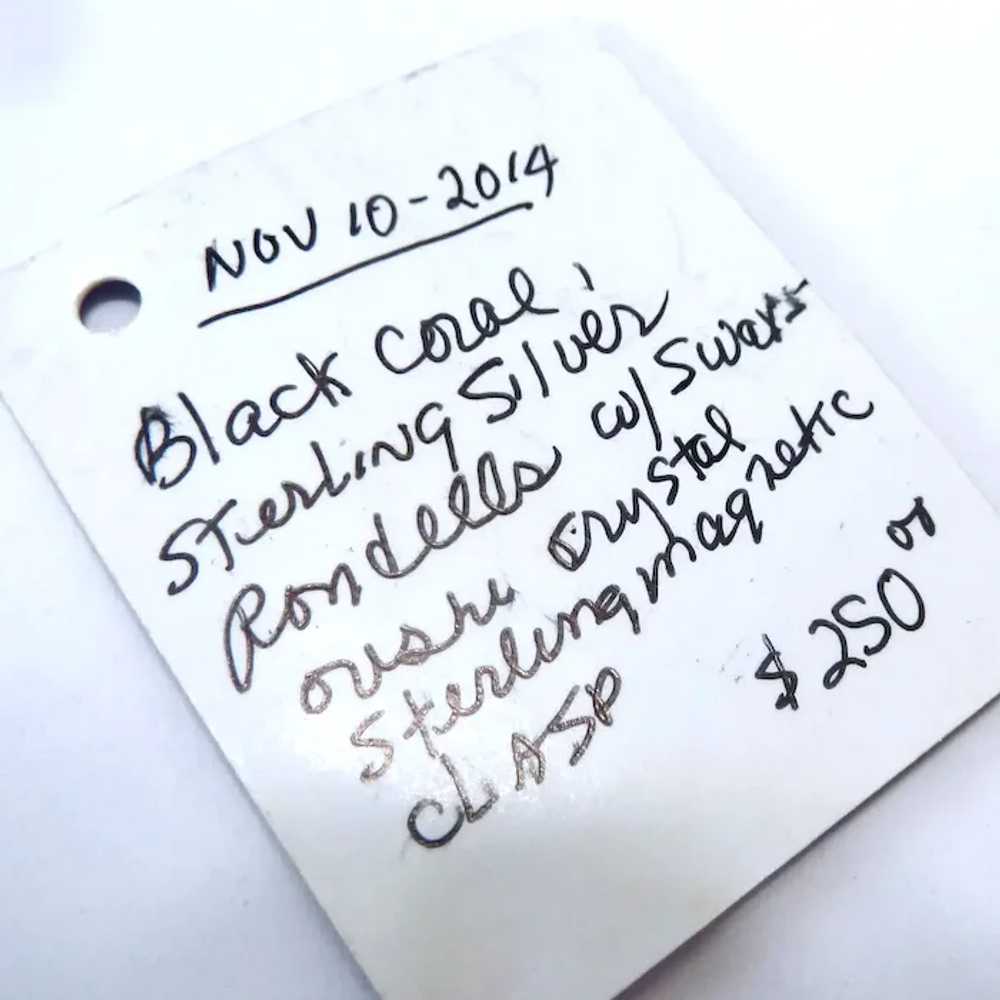 NOV 10-2014
Black coral,
Sterling Silver
Rondells w/ Swarv-
ouski crystal
Sterling magnetic
CLASP $250 00